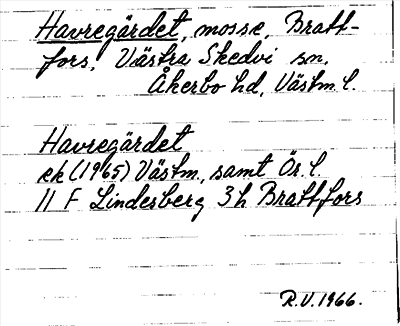 Havregärdet, mosse, Bratt-
fors, Västra Skedvi sn,
Åkerbo hd, Västm. l.
Havregärdet
ek (1965) Västm., samt Ör. l.
11 F Lindesberg 3h Brattfors
R.V. 1966.